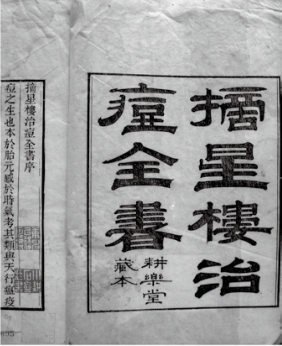 摘星樓治
痘全書
耕樂堂
藏本
摘星樓治痘全書序
痘之生也本於胎元感於時氣考其類與天行瘟疫